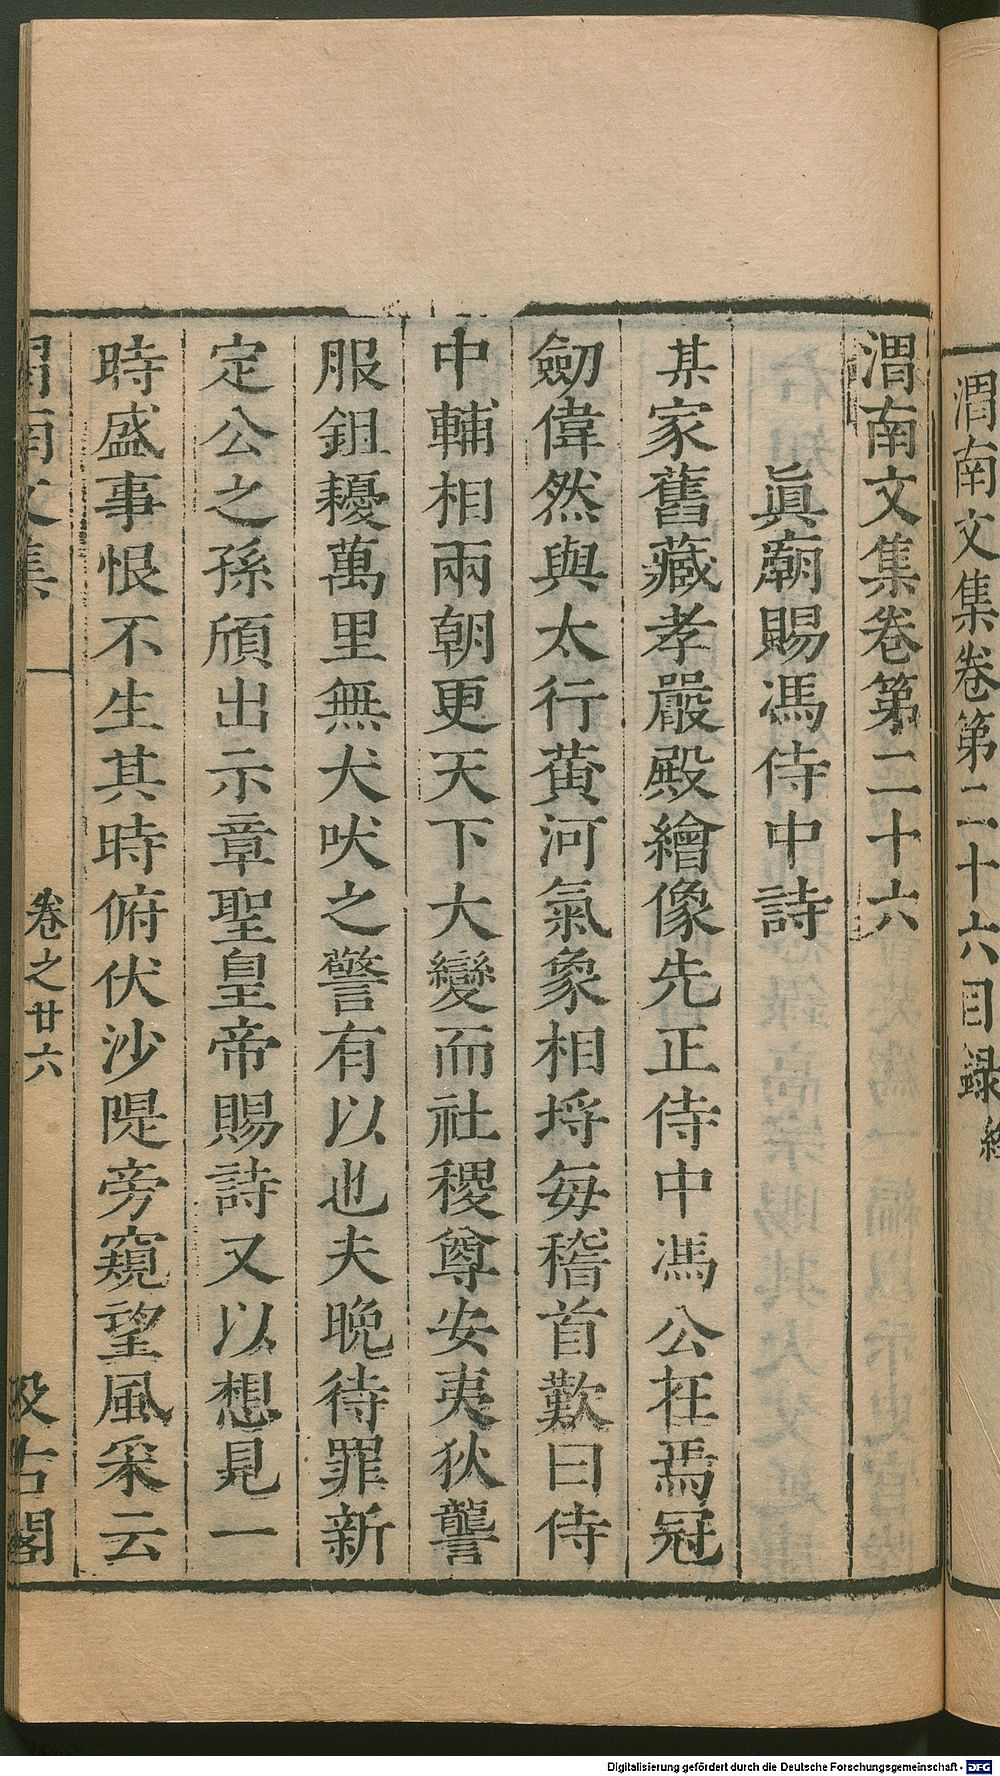 渭南文集卷第二十六目録
渭南文集卷第二十六
眞廟賜馮侍中詩
某家舊藏孝嚴殿繪像先正侍中馮公在焉冠
劒偉然與太行黄河氣象相埓每稽首歎曰侍
中輔相兩朝更天下大變而社稷尊安夷狄讋
服鉏耰萬里無犬吠之警有以也夫晩待罪新
定公之孫頎出示章聖皇帝賜詩又以想見一
時盛事恨不生其時俯伏沙隄旁窺望風采云
渭南文集
卷之廿六
汲古閣
Digitalisierung gefördert durch die Deutsche Forschungsgemeinschaft - DFG